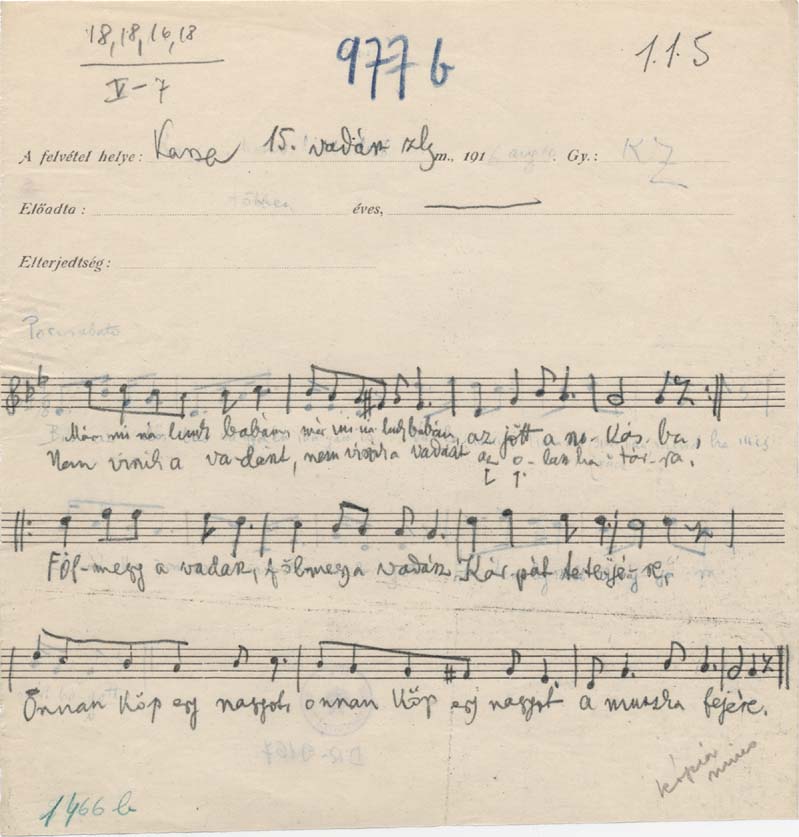 18, 18, 16, 18
V-7
977 b
1.1.5
A felvétel helye: Kassa 15. vadász zlj m., 191 Gy.: KZ
Előadta: többen éves,
Elterjedtség:
Már mi ná lunk babám már mi ná luk babám, az jött a szokásba,
Nem viszik a vadászt, nem viszik a vadászt az olasz határra.
Föl-megy a vadász, fölmegy a vadász Kárpát tetejé-re,
Onnan köp egy nagyot, onnan köp egy nagyot a muszka fejére.
kópia nincs
1466 b